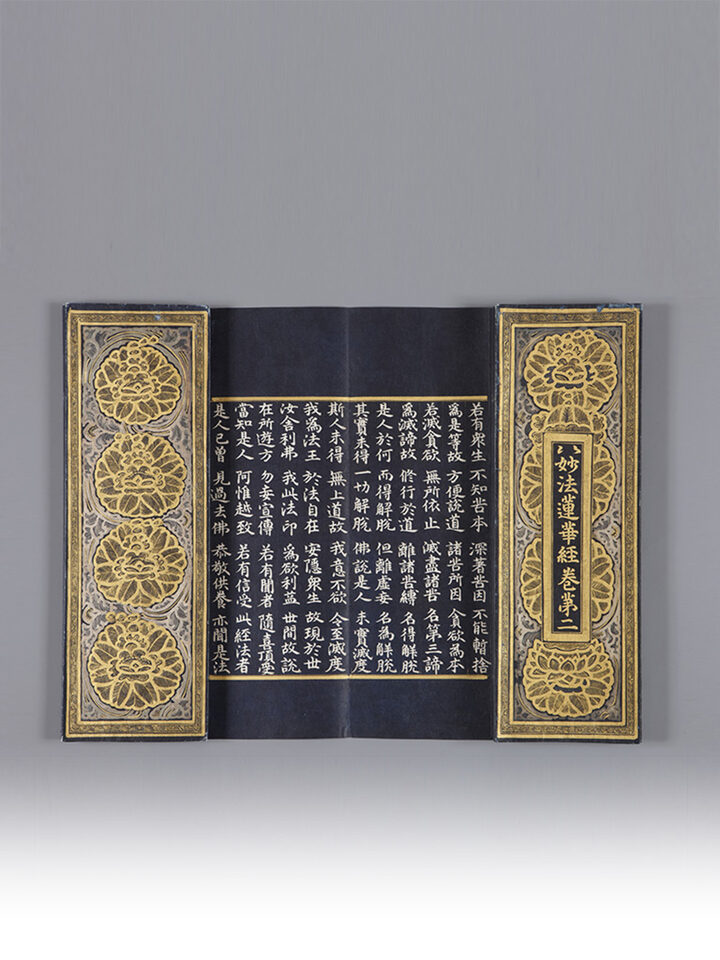 妙法蓮華經卷第二
若有衆生 不知苦本 深著苦因 不能暫捨
為是等故 方便說道 諸苦所因 貪欲為本
若滅貪欲 無所依止 滅盡諸苦 名第三諦
為滅諦故 修行於道 離諸苦縛 名得解脫
是人於何 而得解脫 但離虛妄 名為解脫
其實未得 一切解脫 佛說是人 未實滅度
斯人未得 無上道故 我意不欲 令至滅度
我為法王 於法自在 安隱衆生 故現於世
汝舍利弗 我此法印 為欲利益 世間故說
在所遊方 勿妄宣傳 若有聞者 隨喜頂受
當知是人 阿惟越致 若有信受 此經法者
是人已曾 見過去佛 恭敬供養 亦聞是法